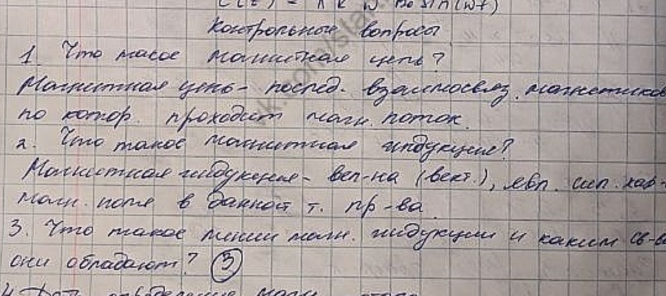 Контрольные вопросы
1. Что такое магнитная цепь?
Магнитная цепь - послед. взаимосвяз. магнетиков
по котор. проходит магн. поток.
2. Что такое магнитная индукция?
Магнитная индукция - вел-на (вект.), явл. сил. хар-
магн. поля в данной т. пр-ва
3. Что такое линии магн. индукции и каким св-в
они обладают? 3